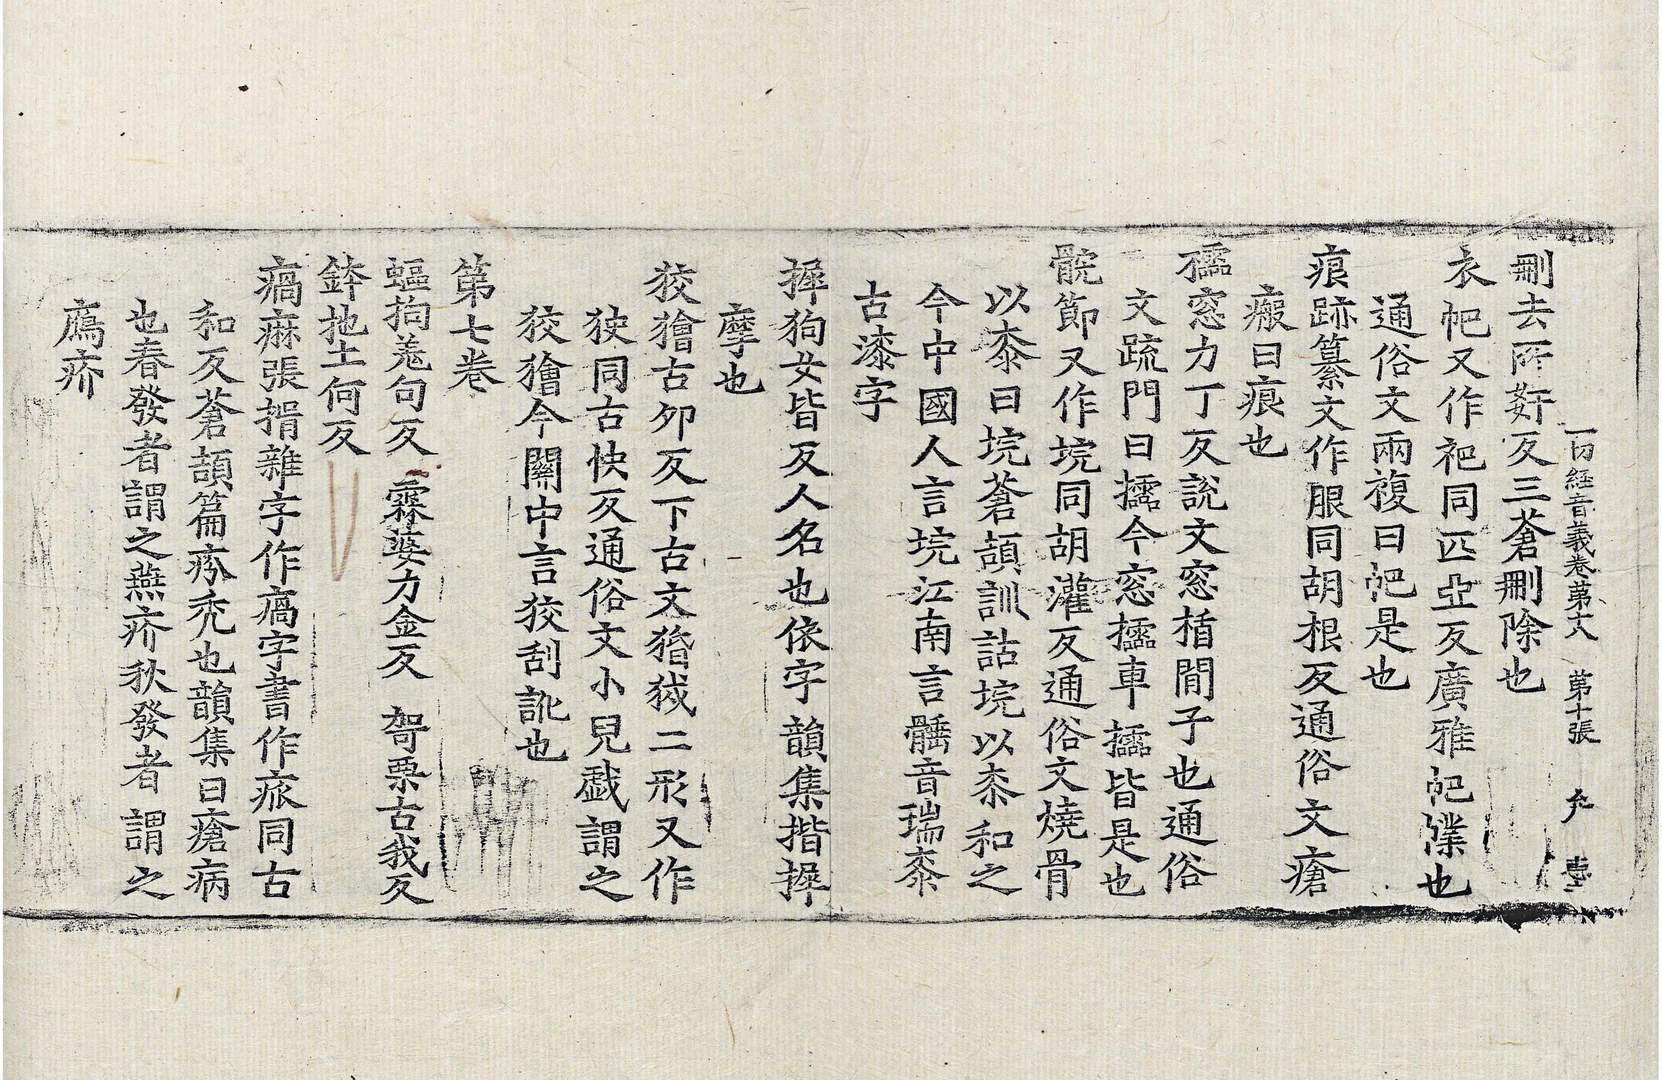 一切経音義卷第十八 第十張 允 壹
刪去所姧反三蒼刪除也
衣帊又作祀同匹亞反廣雅帊幞也
通俗文兩複曰帊是也
痕跡篡文作䏰同胡根反通俗文瘡
瘢曰痕也
櫺窓力丁反説文窓楯間子也通俗
文疏門曰櫺今窓櫺車櫺皆是也
䯘節又作垸同胡灌反通俗文燒骨
以桼曰垸蒼頡訓詁垸以桼和之
今中國人言垸江南言䐣音瑞桼
古漆字
摼狗女皆反人名也依字韻集揩摼
摩也
狡獪古夘反下古文猾㹟二形又作
狭同古快反通俗文小兒戱謂之
狡獪今關中言狡刮訛也
第七卷
蝹拘羗句反 霖婆力金反 哿栗古我反
鉢扡土何反
瘑痳張揖雜字作瘑字書作㽿同古
和反蒼頡篇疥秃也韻集曰瘡病
也春發者謂之燕疥秋發者謂之
鴈疥